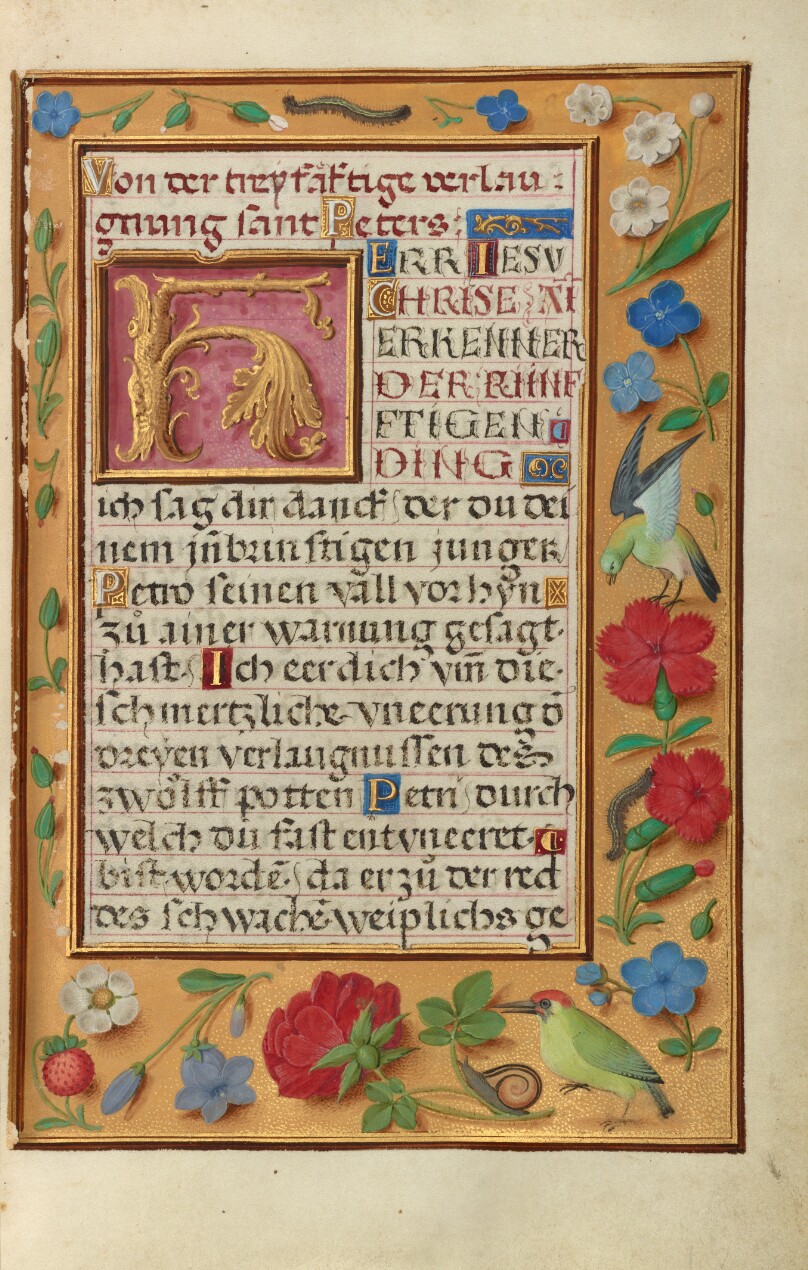 Von der treyfäftige verlau:
gnung sant Peters:
HERR IESV
CHRISE AI
ERKENNER
DER KÜNF
FTIGEN
DING
ich sag dir danck der du dei
nem jnbrunstigen junger
Petro seinen väll vor hyn
zů ainer warnung gesagt
hast. Ich eer dich vm̄ die
schmertzliche vneerung d̄
dreÿen verlaugnussen des
zwölff potten Petri durch
welch du fast entvneeret
bist wordē da er zů der red
des schwachē weiplichs ge